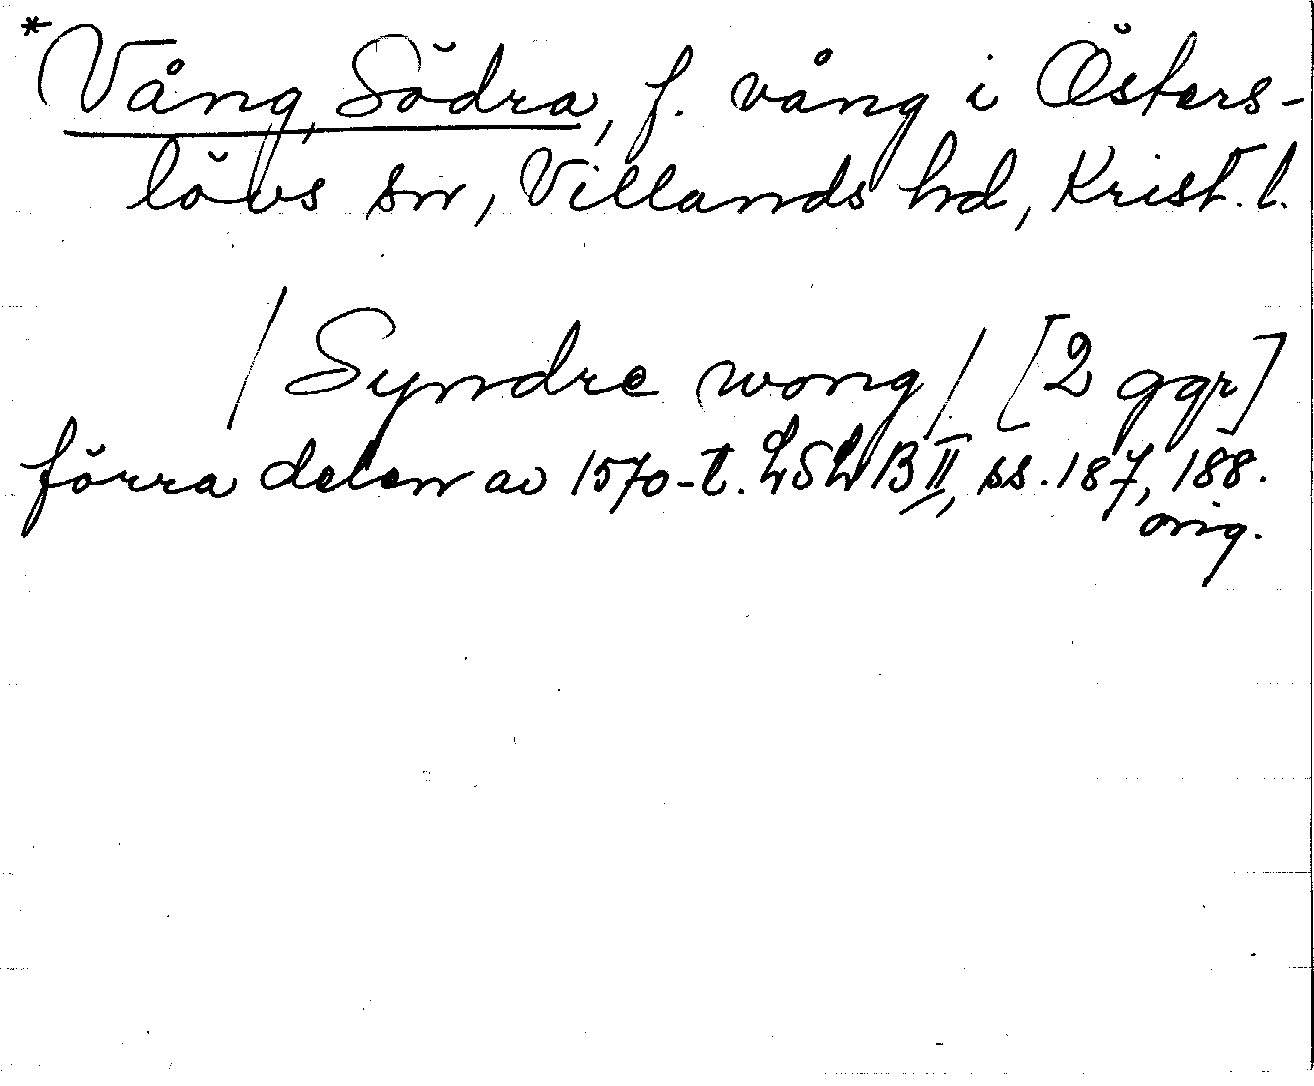 *Vång, Södra, f. vång i Östers-
lövs sn, Villands hd, Krist. l.
/Syndre wong/ [2 ggr]
förra delen av 1570-t. LSL B II, ss. 187, 188.
orig.